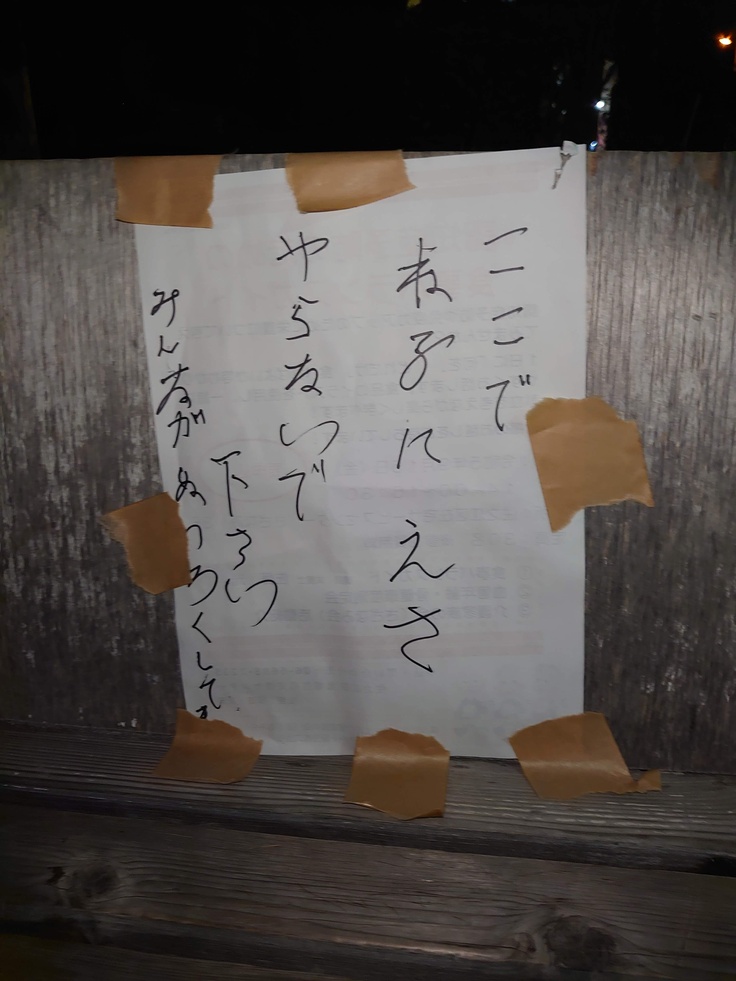 ここで
ね子に えさ
やらないで
下さい
みんなが めいわくして